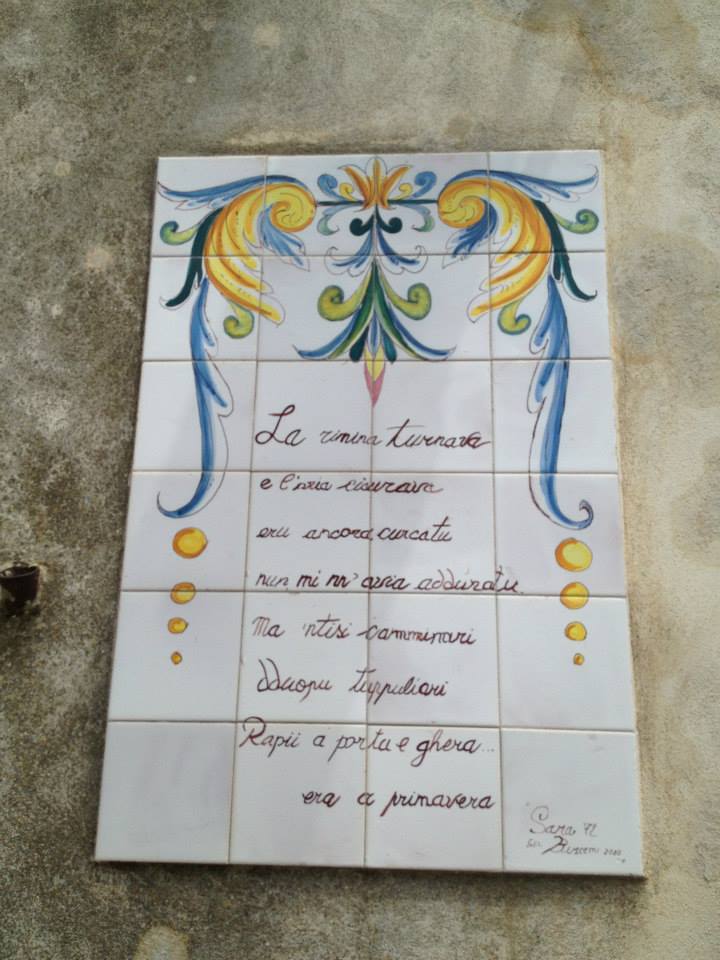 La rinina turnava
e l'aria ciaurava
eru ancora curcatu
nun mi nn'avia addunatu.
Ma 'ntisi camminari
dduopu tuppuliari
Rapii a porta e ghera...
era a primavera
Sara
2000